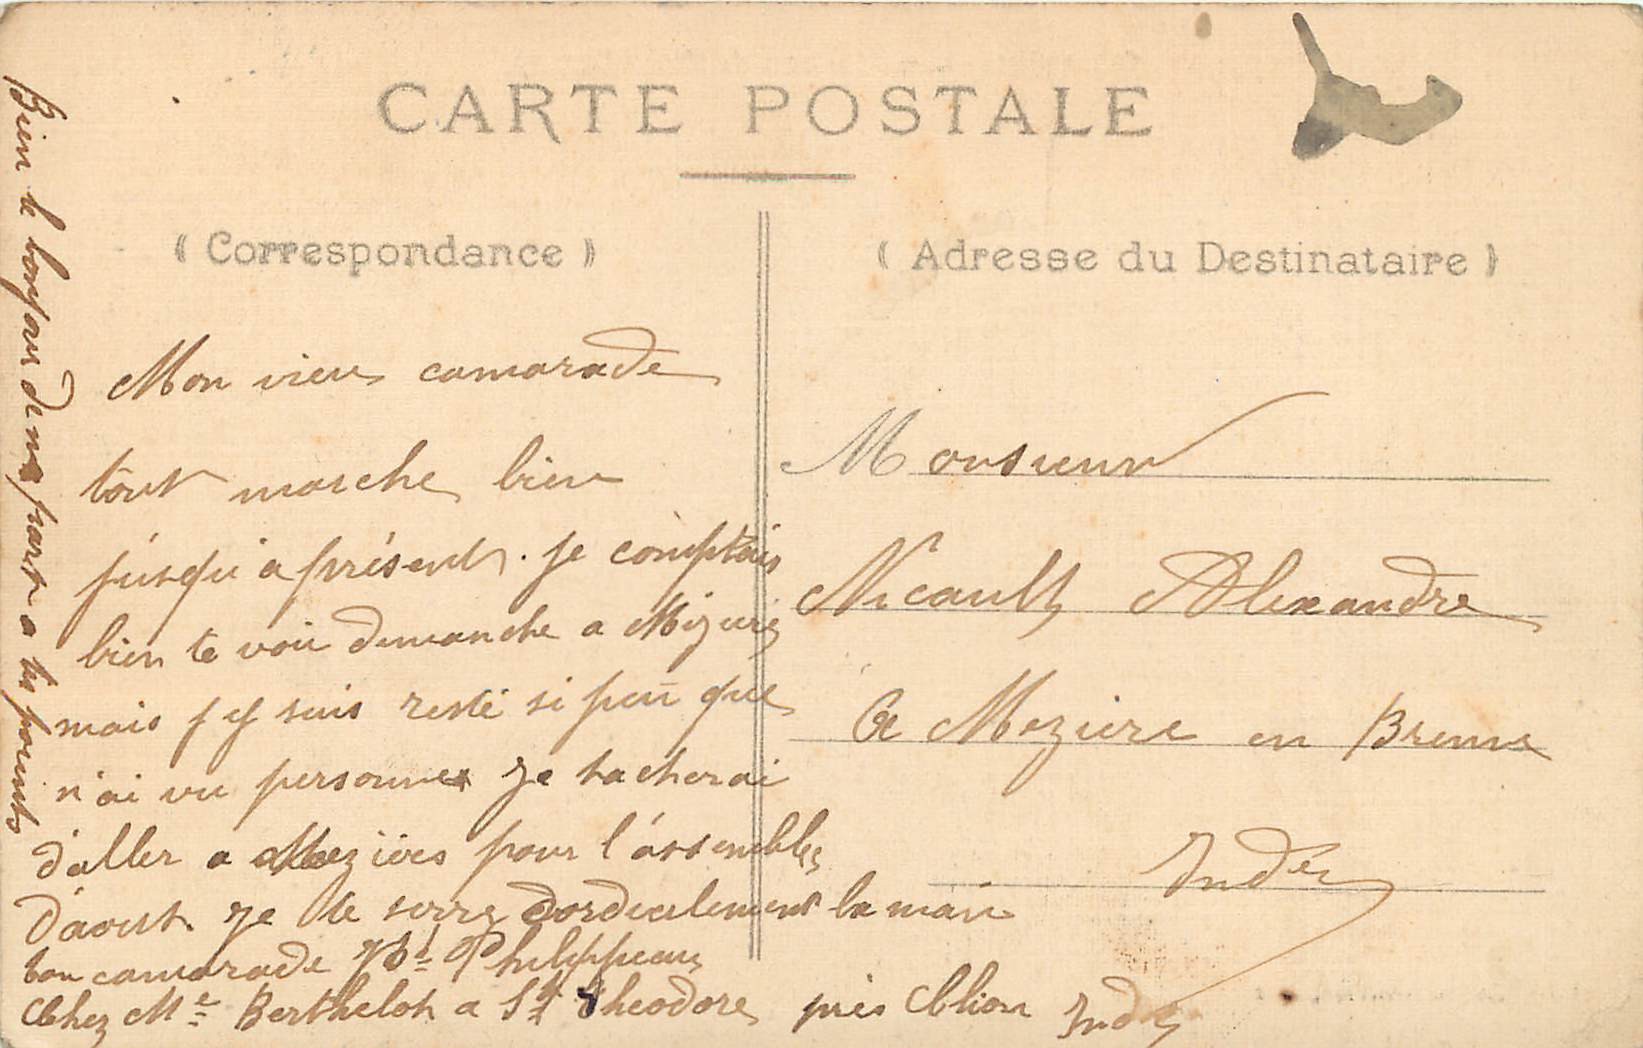 CARTE POSTALE
( Correspondance )
( Adresse du Destinataire )
Mon vieux camarade
tout marche bien
jusqu'a présent. Je comptais
bien te voir dimanche a Mézières
mais j'y suis resté si peu que
n'ai vu personne Je tacherai
d'aller a Mezières pour l'assemblée
d'aout. Je te serre cordialement la main
ton camarade Philippeau
Chez Me Berthelot a St Theodore près Clion Indre
Bien le bonjour de ma part a tes parents
Monsieur
Nicault Alexandre
A Meziere en Brenne
Indre